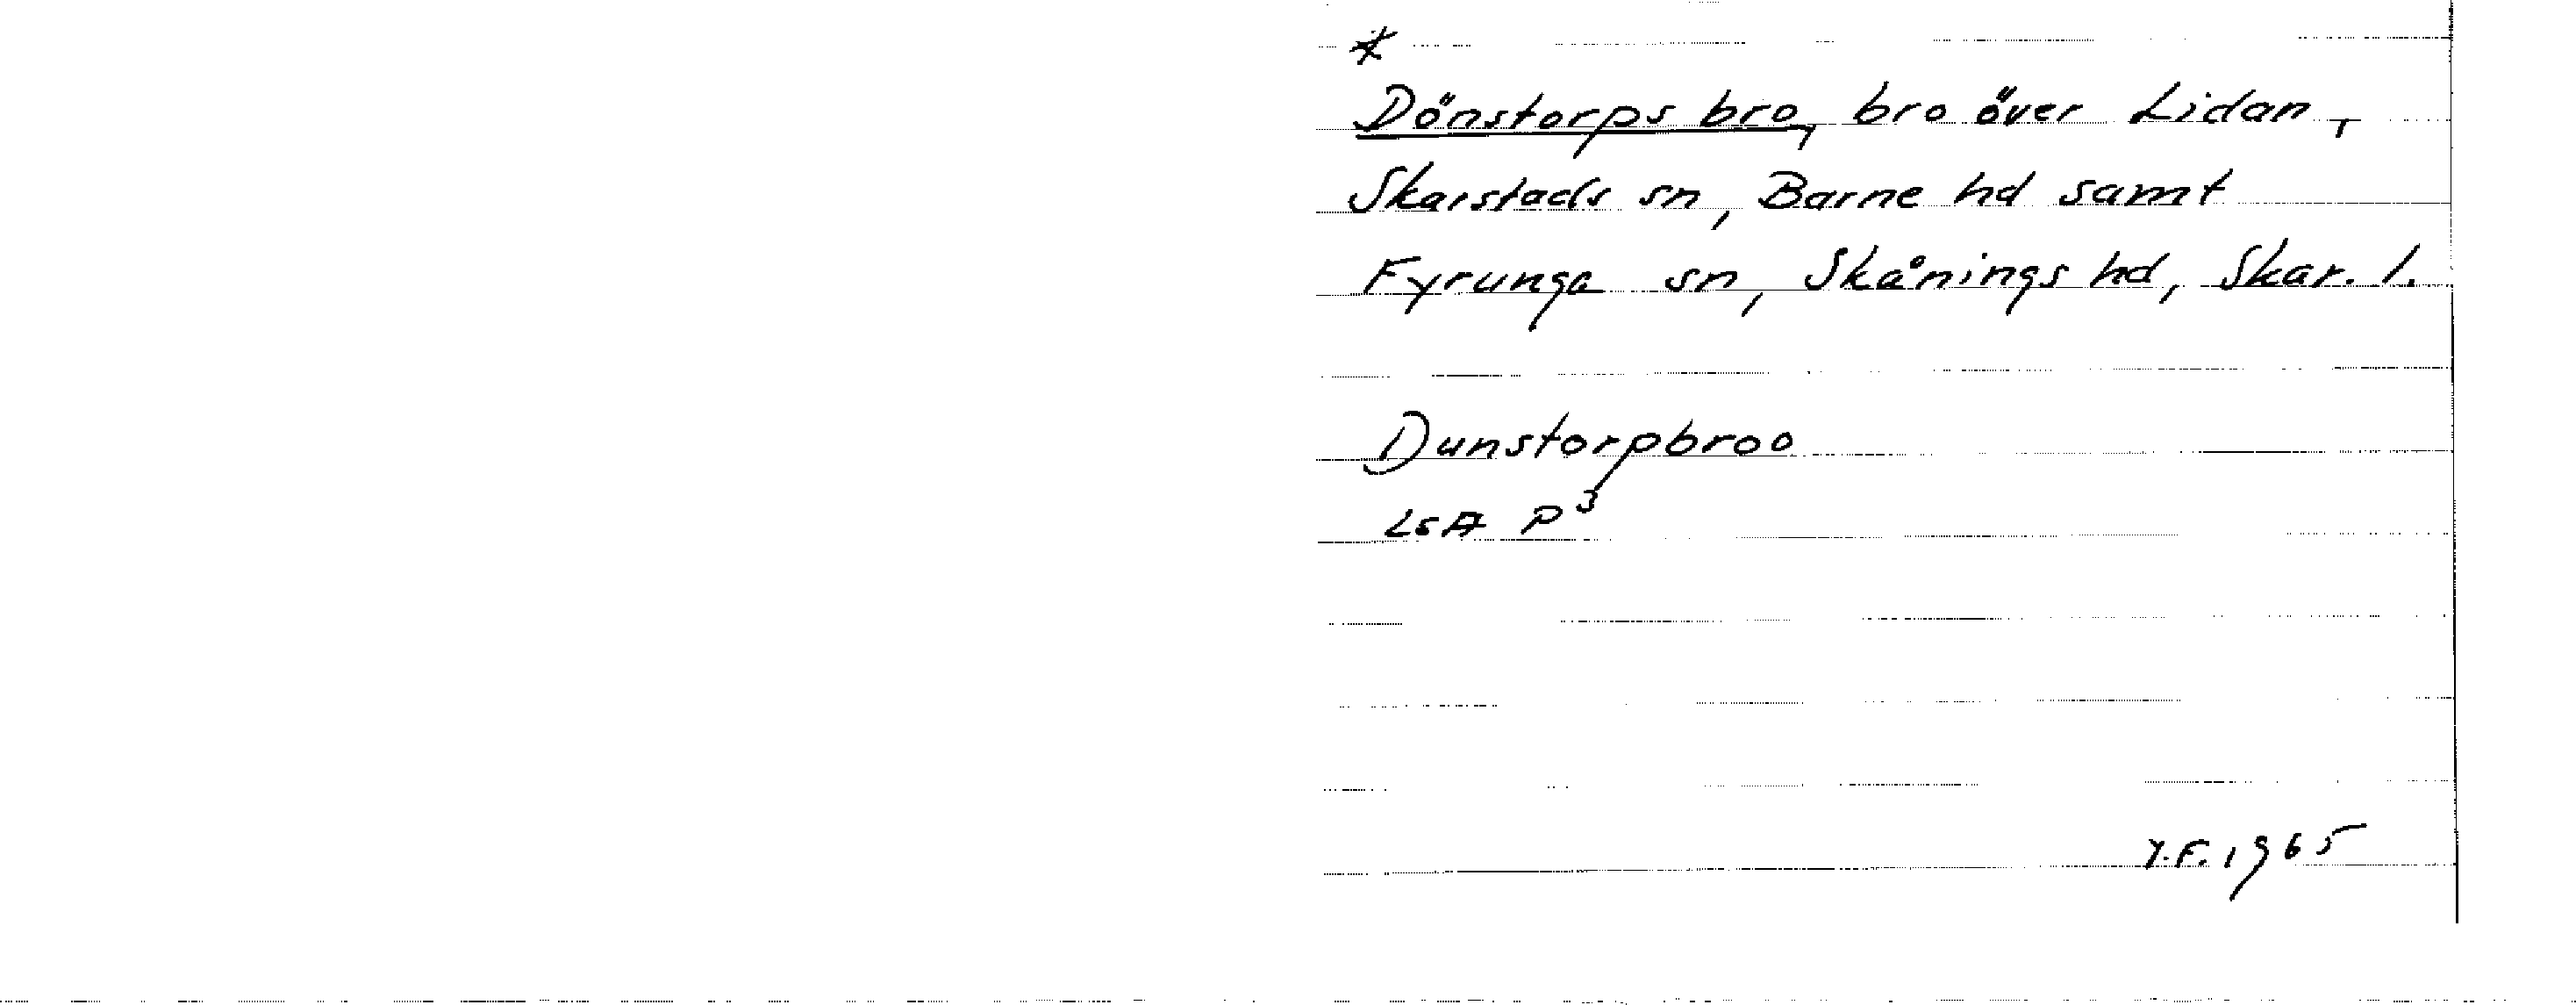 *
Dönstorps bro, bro över Lidan,
Skarstads sn, Barne hd samt
Fyrunga sn, Skånings hd, Skar. l.
Dunstorpbroo
LSA P³
Y.F. 1965